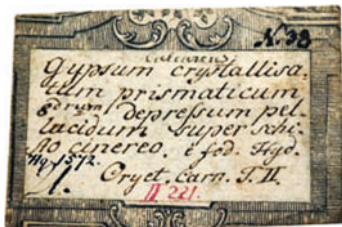 N. 38
calcareus
Gypsum crystallisa-
tum prismaticum
6drum depressum pel-
lucidum super schi-
sto cinereo. è fod. Hyd.
Hq. 1572.
Oryct. Carn. T. II.
II 221.